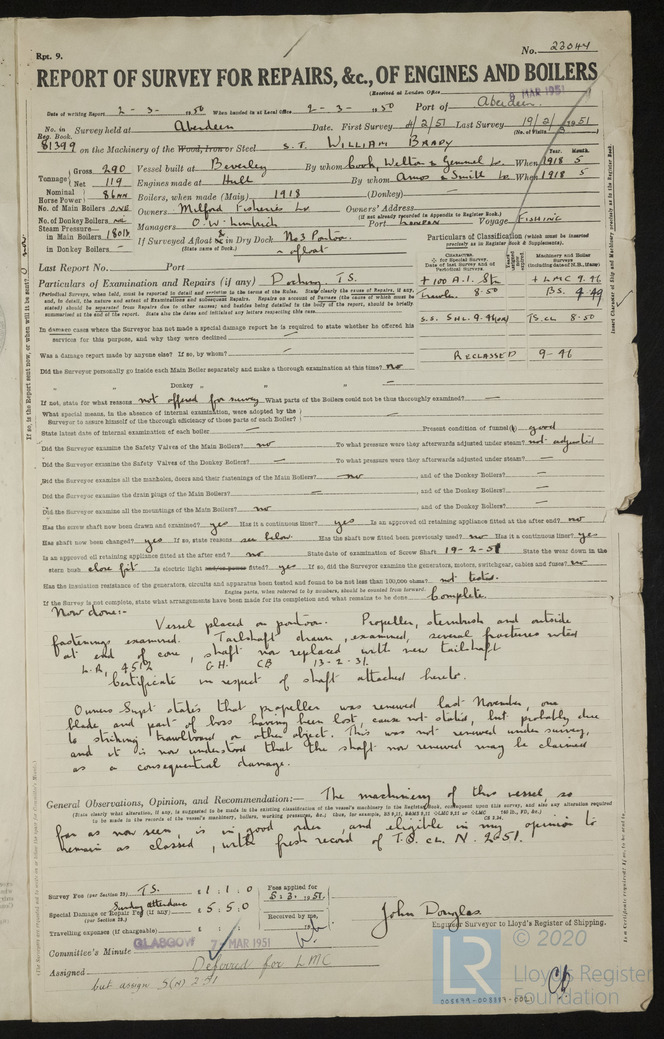 Rpt. 9.
No. 23044
REPORT OF SURVEY FOR REPAIRS, &c., OF ENGINES AND BOILERS
(Received at London Office
MAR 1951
Date of writing Report 2-3- 1950 When handed in at Local Office 2-3- 1950 Port of Aberdeen.
No. in Reg. Book. Survey held at Aberdeen Date. First Survey 14/2/51 Last Survey 19/2/1951
(No. of Visits
81399 on the Machinery of the Wood, Iron or Steel S.T. WILLIAM BRADY
Tonnage Gross 290 Vessel built at Beverley By whom Cook, Welton & Gemmell Ld. When 1918 5
Net 119 Engines made at Hull By whom Amos & Smith Ld. When 1918 5
Nominal Horse Power 86 Boilers, when made (Main) 1918 (Donkey) —
No. of Main Boilers ONE Owners Milford Fisheries Ld Owners' Address
(if not already recorded in Appendix to Register Book.)
No. of Donkey Boilers Managers O.W. Limbrick Port Voyage FISHING
Steam Pressure— in Main Boilers 180 lb If Surveyed Afloat & in Dry Dock No 3 Pontoon.
(State name of Dock.)
in Donkey Boilers — & afloat
Particulars of Classification (which must be inserted precisely as in Register Book & Supplements).
Last Report No. Port
Particulars of Examination and Repairs (if any) Docking T.S.
+ 100 A.1. Stm + LMC 9.46
Trawler. 8.50 BS. 4.49
S.S. 9.46 TS.CL 8.50
RECLASSED 9-46
In damage cases where the Surveyor has not made a special damage report he is required to state whether he offered his
services for this purpose, and why they were declined —
Was a damage report made by anyone else? If so, by whom? —
Did the Surveyor personally go inside each Main Boiler separately and make a thorough examination at this time? no
" " Donkey " " " —
If not, state for what reasons not offered for survey What parts of the Boilers could not be thus thoroughly examined? —
What special means, in the absence of internal examination, were adopted by the
Surveyor to assure himself of the thorough efficiency of those parts of each Boiler? —
State latest date of internal examination of each boiler — Present condition of funnel(s) good
Did the Surveyor examine the Safety Valves of the Main Boilers? no To what pressure were they afterwards adjusted under steam? not adjusted
Did the Surveyor examine the Safety Valves of the Donkey Boilers? — To what pressure were they afterwards adjusted under steam? —
Did the Surveyor examine all the manholes, doors and their fastenings of the Main Boilers? no , and of the Donkey Boilers? —
Did the Surveyor examine the drain plugs of the Main Boilers? — , and of the Donkey Boilers? —
Did the Surveyor examine all the mountings of the Main Boilers? no , and of the Donkey Boilers? —
Has the screw shaft now been drawn and examined? yes Has it a continuous liner? yes Is an approved oil retaining appliance fitted at the after end? no
Has shaft now been changed? yes If so, state reasons see below Has the shaft now fitted been previously used? no Has it a continuous liner? yes
Is an approved oil retaining appliance fitted at the after end? no State date of examination of Screw Shaft 19-2-51 State the wear down in the
stern bush close fit Is electric light and/or power fitted? yes If so, did the Surveyor examine the generators, motors, switchgear, cables and fuses? no
Has the insulation resistance of the generators, circuits and apparatus been tested and found to be not less than 100,000 ohms? not tested.
Engine parts, when referred to by numbers, should be counted from forward.
If the Survey is not complete, state what arrangements have been made for its completion and what remains to be done Complete.
Now done:-
Vessel placed on pontoon. Propeller, sternbush and outside
fastenings examined. Tailshaft drawn, examined, several fractures noted
at end of cone, shaft now replaced with new tailshaft
L.R. 4512 G.H. CB 13-2-31.
Certificate in respect of shaft attached hereto.
Owners Supt states that propeller was renewed last November, one
blade and part of boss having been lost, cause not stated, but probably due
to striking trawlboard or other object. This was not renewed under survey,
and it is now understood that the shaft now renewed may be claimed
as a consequential damage.
General Observations, Opinion, and Recommendation:— The machinery of this vessel so
far as now seen, is in good order, and eligible in my opinion to
remain as classed, with fresh record of T.S. CL N. 2.51.
Survey Fee (per Section 29) T.S. £ 1 : 1 : 0
Fees applied for 5. 3. 1951.
Special Damage or Repair Fee (if any) Sunday attendance £ 5 : 5 : 0
(per Section 29.)
Received by me,
Travelling expenses (if chargeable) £ : :
John Douglas
Engineer Surveyor to Lloyd's Register of Shipping.
Committee's Minute GLASGOW 7 - MAR 1951
Assigned Deferred for LMC
but assign S(N) 2.51
© 2020
LR
Lloyd's Register
Foundation